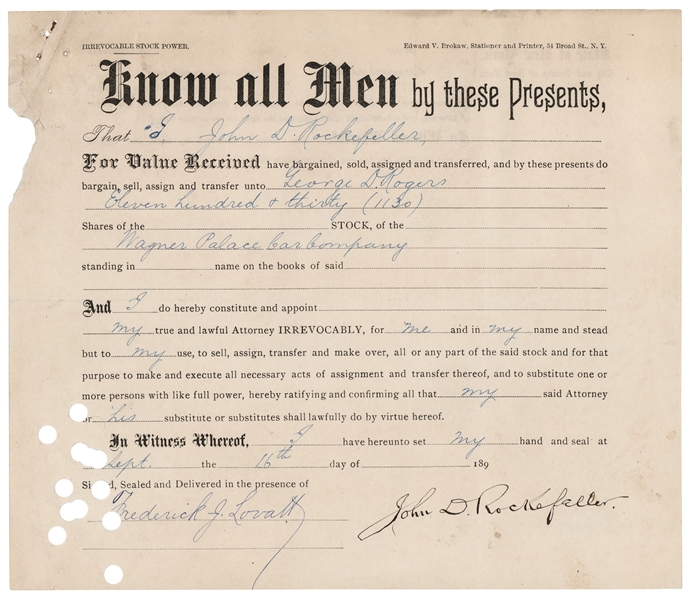 IRREVOCABLE STOCK POWER. Edward V. Brokaw, Stationer and Printer, 54 Broad St., N. Y.
Know all Men by these Presents,
That I, John D. Rockefeller,
For Value Received have bargained, sold, assigned and transferred, and by these presents do
bargain, sell, assign and transfer unto George D. Rogers
Eleven hundred & thirty (1130)
Shares of the STOCK, of the
Wagner Palace Car Company
standing in name on the books of said
And I do hereby constitute and appoint
my true and lawful Attorney IRREVOCABLY, for me and in my name and stead
but to my use, to sell, assign, transfer and make over, all or any part of the said stock and for that
purpose to make and execute all necessary acts of assignment and transfer thereof, and to substitute one or
more persons with like full power, hereby ratifying and confirming all that my said Attorney
or his substitute or substitutes shall lawfully do by virtue hereof.
In Witness Whereof, I have hereunto set my hand and seal at
Sept. the 16th day of 189
Signed, Sealed and Delivered in the presence of
Frederick J. Lovatt John D. Rockefeller.